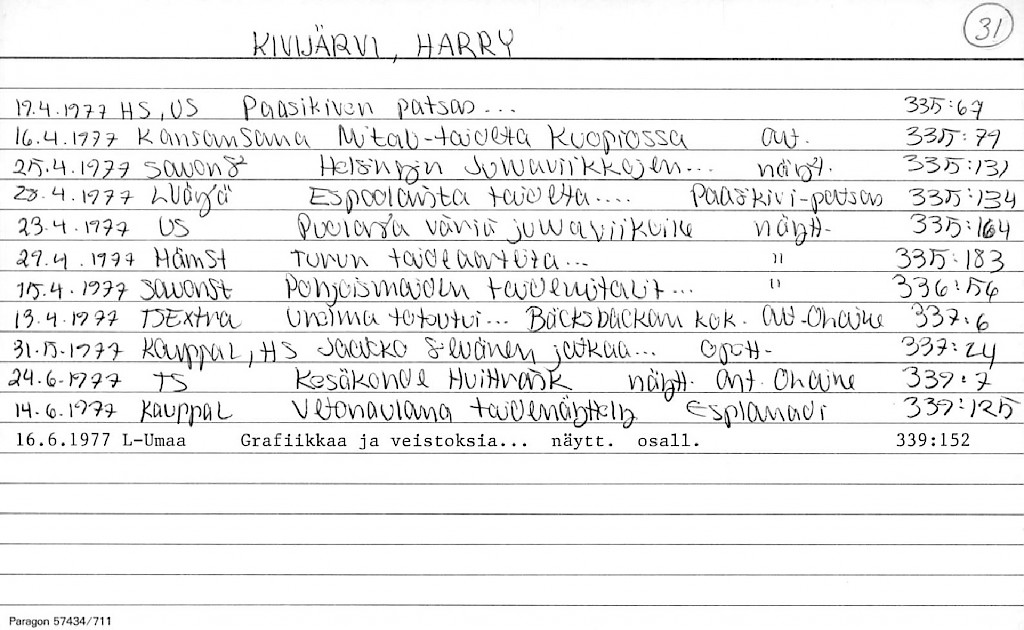 31
KIVIJÄRVI, HARRY
19.4.1977 HS, US Paasikiven patsas... 335:67
16.4.1977 Kansansana Mitali-taidetta Kuopiossa 335:79
25.4.1977 Savons² Helsingin Juhlaviikkojen... näyt². 335:131
28.4.1977 LVäylä Espoolaista taidetta.... Paasikivi-patsas 335:134
23.4.1977 US Puolasta väriä juhlaviikoille näytt. 335:164
29.4.1977 HämSt Turun taideaarteita... " 335:183
15.4.1977 SavonSt Pohjoismaiden taidemitalit... " 336:56
13.4.1977 TSExtra Unelma toteutui... Bäcksbackan kok. Ant-Chaine 337:6
31.5.1977 KauppaL, HS Jaakko jatkaa... opett. 337:24
24.6.1977 TS Kesäkohde Hvitträsk näytt. Ant. Chaine 339:7
14.6.1977 KauppaL Vetonaulana taidenäyttely Esplanadi 339:125
16.6.1977 L-Umaa Grafiikkaa ja veistoksia... näytt. osall. 339:152
Paragon 57434/711